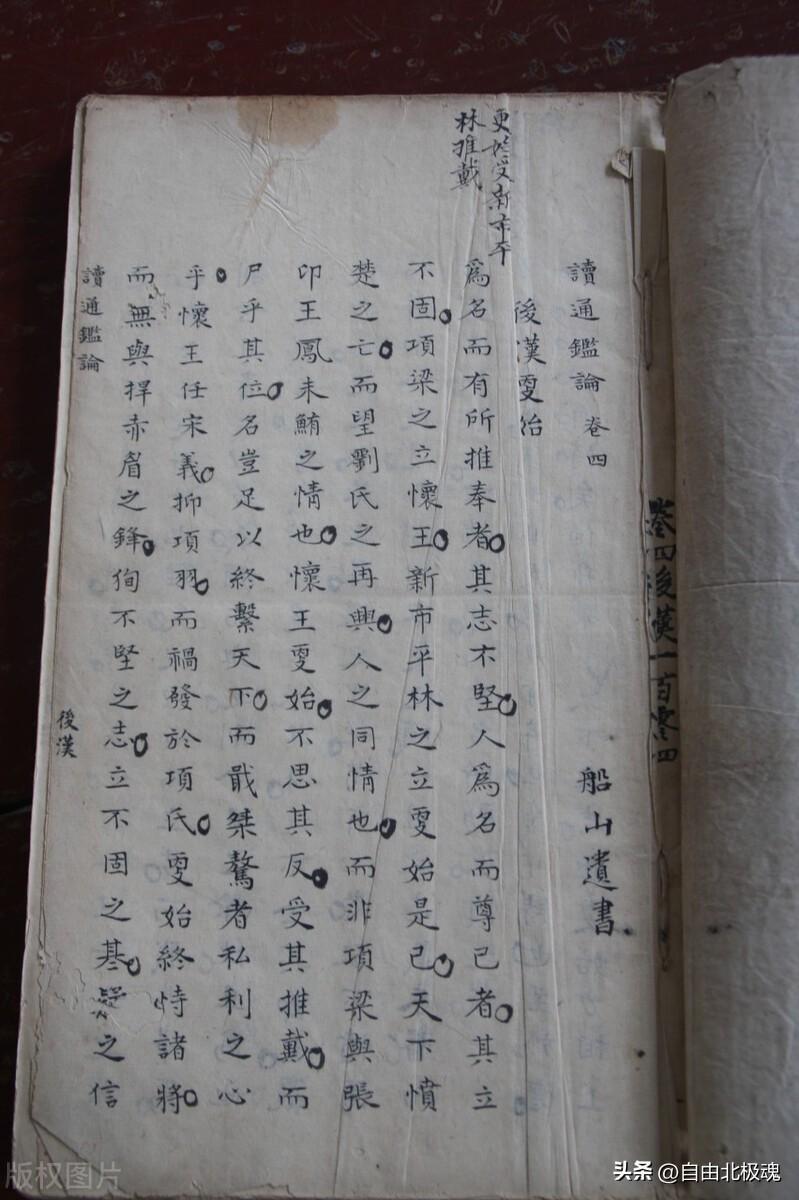 四後漢一百零四
讀通鑑論 卷四 船山遺書
後漢更始
更始受新市平
林推戴
爲名而有所推奉者。其志不堅。人爲名而尊己者。其立
不固。項梁之立懷王。新市平林之立更始是已。天下憤
楚之亡。而望劉氏之再興。人之同情也。而非項梁與張
印王鳳朱鮪之情也。懷王更始。不思其反。受其推戴。而
尸乎其位。名豈足以終繫天下。而戢桀驁者私利之心
乎。懷王任宋義。抑項羽。而禍發於項氏。更始終恃諸將。
而無與捍赤眉之鋒。徇不堅之志。立不固之基。疑之信
讀通鑑論 後漢
版权图片
头条 @自由北极魂